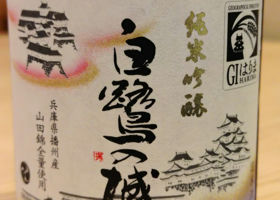 純米吟醸
白鷺の城
兵庫県播州産
山田錦全量使用
GIはりま